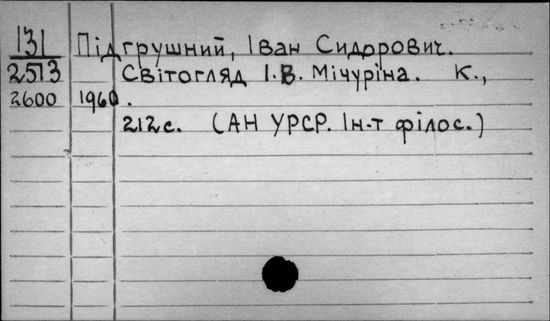 131 Підгрушний, Іван Сидорович.
2513 Світогляд І.В. Мічуріна. К.,
2600 1960.
212с. (АН УРСР. Ін-т філос.)